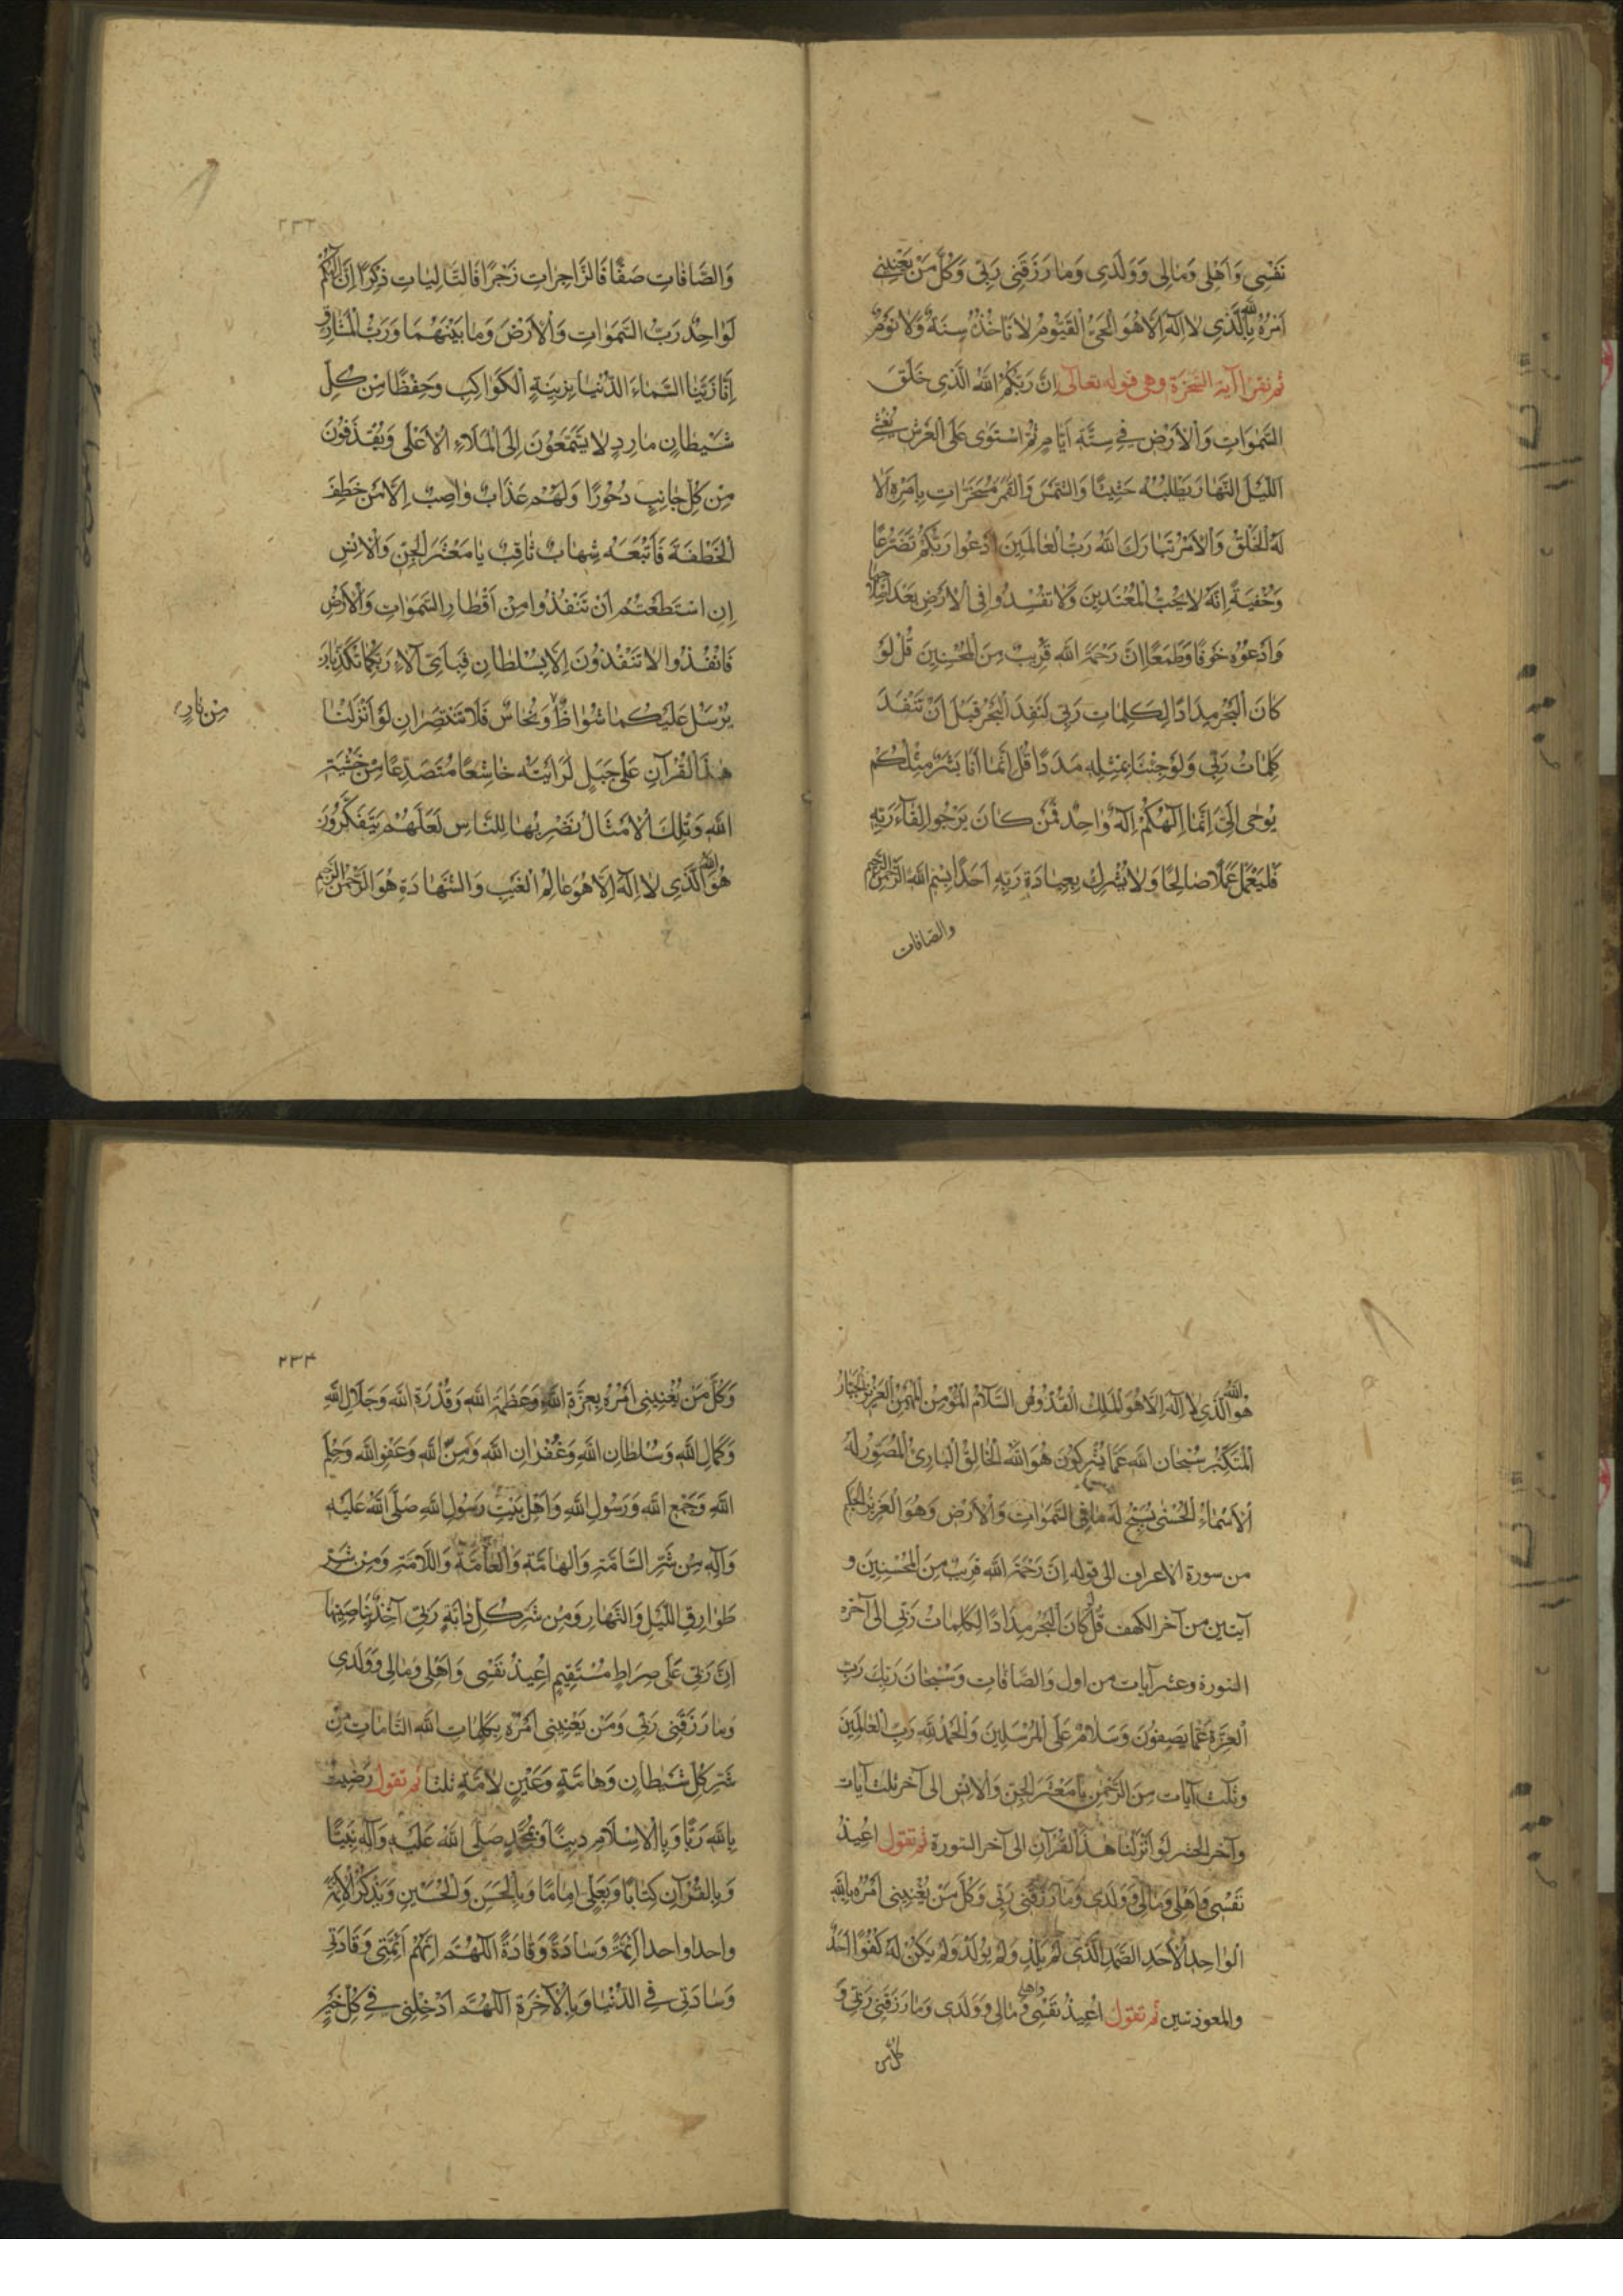 نَفْسِي وَاَهْلِي وَمٰالِي وَوَلَدِي وَمٰا رَزَقَنِي رَبّي وَكُلَّ مَنْ يَعْنِينِي
اَمْرُهُ بِاللّٰهِ الَّذِي لاٰ اِلٰهَ اِلّاٰ هُوَ الْحَيُّ الْقَيُّومُ لاٰ تَأْخُذُهُ سِنَةٌ وَلاٰ نَوْمٌ
ثم تقرا آية السّخرة وهي قوله تعالى اِنَّ رَبَّكُمُ اللّٰهُ الَّذِي خَلَقَ
السَّمٰوَاتِ وَالْاَرْضَ فِي سِتَّةِ اَيّٰامٍ ثُمَّ اسْتَوٰى عَلَى الْعَرْشِ يُغْشِي
اللَّيْلَ النَّهٰارَ يَطْلُبُهُ حَثِيثًا وَالشَّمْسَ وَالْقَمَرَ مُسَخَّرٰاتٍ بِاَمْرِهِ اَلاٰ
لَهُ الْخَلْقُ وَالْاَمْرُ تَبٰارَكَ اللّٰهُ رَبُّ الْعٰالَمِينَ اُدْعُوا رَبَّكُمْ تَضَرُّعًا
وَخُفْيَةً اِنَّهُ لاٰ يُحِبُّ الْمُعْتَدِينَ وَلاٰ تُفْسِدُوا فِي الْاَرْضِ بَعْدَ اِصْلاٰحِهٰا
وَادْعُوهُ خَوْفًا وَطَمَعًا اِنَّ رَحْمَةَ اللّٰهِ قَرِيبٌ مِنَ الْمُحْسِنِينَ قُلْ لَوْ
كٰانَ الْبَحْرُ مِدٰادًا لِكَلِمٰاتِ رَبّي لَنَفِدَ الْبَحْرُ قَبْلَ اَنْ تَنْفَدَ
كَلِمٰاتُ رَبّي وَلَوْ جِئْنٰا بِمِثْلِهِ مَدَدًا قُلْ اِنَّمٰا اَنَا بَشَرٌ مِثْلُكُمْ
يُوحٰى اِلَيَّ اِنَّمٰا اِلٰهُكُمْ اِلٰهٌ وٰاحِدٌ فَمَنْ كٰانَ يَرْجُوا لِقٰاءَ رَبِّهِ
فَلْيَعْمَلْ عَمَلًا صٰالِحًا وَلاٰ يُشْرِكْ بِعِبٰادَةِ رَبِّهِ اَحَدًا بِسْمِ اللّٰهِ الرَّحْمٰنِ الرَّحِيمِ
والصّافات
٢٣٣
وَالصّٰافّٰاتِ صَفًّا فَالزّٰاجِرٰاتِ زَجْرًا فَالتّٰالِيٰاتِ ذِكْرًا اِنَّ اِلٰهَكُمْ
لَوٰاحِدٌ رَبُّ السَّمَوٰاتِ وَالْاَرْضِ وَمٰا بَيْنَهُمٰا وَرَبُّ الْمَشٰارِقِ
اِنّٰا زَيَّنَّا السَّمٰاءَ الدُّنْيٰا بِزِينَةٍ الْكَوٰاكِبِ وَحِفْظًا مِنْ كُلِّ
شَيْطٰانٍ مٰارِدٍ لاٰ يَسَّمَّعُونَ اِلَى الْمَلَاءِ الْاَعْلٰى وَيُقْذَفُونَ
مِنْ كُلِّ جٰانِبٍ دُحُورًا وَلَهُمْ عَذٰابٌ وٰاصِبٌ اِلّاٰ مَنْ خَطِفَ
الْخَطْفَةَ فَاَتْبَعَهُ شِهٰابٌ ثٰاقِبٌ يٰا مَعْشَرَ الْجِنِّ وَالْاِنْسِ
اِنِ اسْتَطَعْتُمْ اَنْ تَنْفُذُوا مِنْ اَقْطٰارِ السَّمَوٰاتِ وَالْاَرْضِ
فَانْفُذُوا لاٰ تَنْفُذُونَ اِلّاٰ بِسُلْطٰانٍ فَبِاَيِّ آلاٰءِ رَبِّكُمٰا تُكَذِّبٰانِ
يُرْسَلُ عَلَيْكُمٰا شُوٰاظٌ وَنُحٰاسٌ فَلاٰ تَنْتَصِرٰانِ لَوْ اَنْزَلْنٰا
مِنْ نٰارٍ
هٰذَا الْقُرْآنَ عَلٰى جَبَلٍ لَرَاَيْتَهُ خٰاشِعًا مُتَصَدِّعًا مِنْ خَشْيَةِ
اللّٰهِ وَتِلْكَ الْاَمْثٰالُ نَضْرِبُهٰا لِلنّٰاسِ لَعَلَّهُمْ يَتَفَكَّرُونَ
هُوَ اللّٰهُ الَّذِي لاٰ اِلٰهَ اِلّاٰ هُوَ عٰالِمُ الْغَيْبِ وَالشَّهٰادَةِ هُوَ الرَّحْمٰنُ الرَّحِيمُ
هُوَ اللّٰهُ الَّذِي لاٰ اِلٰهَ اِلّاٰ هُوَ الْمَلِكُ الْقُدُّوسُ السَّلاٰمُ الْمُؤْمِنُ الْمُهَيْمِنُ الْعَزِيزُ الْجَبّٰارُ
الْمُتَكَبِّرُ سُبْحٰانَ اللّٰهِ عَمّٰا يُشْرِكُونَ هُوَ اللّٰهُ الْخٰالِقُ الْبٰارِئُ الْمُصَوِّرُ لَهُ
الْاَسْمٰاءُ الْحُسْنٰى يُسَبِّحُ لَهُ مٰا فِي السَّمَوٰاتِ وَالْاَرْضِ وَهُوَ الْعَزِيزُ الْحَكِيمُ
من سورة الاعراف الى قوله اِنَّ رَحْمَةَ اللّٰهِ قَرِيبٌ مِنَ الْمُحْسِنِينَ و
آيتين من آخر الكهف قُلْ لَوْ كٰانَ الْبَحْرُ مِدٰادًا لِكَلِمٰاتِ رَبّي الى آخر
السورة وعشر آيات من اول وَالصّٰافّٰاتِ وَسُبْحٰانَ رَبِّكَ رَبِّ
الْعِزَّةِ عَمّٰا يَصِفُونَ وَسَلاٰمٌ عَلَى الْمُرْسَلِينَ وَالْحَمْدُ لِلّٰهِ رَبِّ الْعٰالَمِينَ
وثلث آيات مِنَ الرَّحْمٰنِ يٰا مَعْشَرَ الْجِنِّ وَالْاِنْسِ الى آخر ثلث آيات
وآخر الحشر لَوْ اَنْزَلْنٰا هٰذَا الْقُرْآنَ الى آخر السورة ثم تقول اُعِيذُ
نَفْسِي وَاَهْلِي وَمٰالِي وَوَلَدِي وَمٰا رَزَقَنِي رَبّي وَكُلَّ مَنْ يُعْنِينِي اَمْرُهُ بِاللّٰهِ
الْوٰاحِدِ الْاَحَدِ الصَّمَدِ الَّذِي لَمْ يَلِدْ وَلَمْ يُولَدْ وَلَمْ يَكُنْ لَهُ كُفُوًا اَحَدٌ
والمعوذتين ثم تقول اُعِيذُ نَفْسِي وَاهلي وَمٰالِي وَوَلَدِي وَمٰا رَزَقَنِي رَبّي وَ
كُلَّ من
٢٣٤
وَكُلَّ مَنْ يُعْنِينِي اَمْرُهُ بِعِزَّةِ اللّٰهِ وَعَظَمَةِ اللّٰهِ وَقُدْرَةِ اللّٰهِ وَجَلاٰلِ اللّٰهِ
وَكَمٰالِ اللّٰهِ وَسُلْطٰانِ اللّٰهِ وَغُفْرٰانِ اللّٰهِ وَمَنِّ اللّٰهِ وَعَفْوِ اللّٰهِ وَحِلْمِ
اللّٰهِ وَجَمْعِ اللّٰهِ وَرَسُولِ اللّٰهِ وَاَهْلِ بَيْتِ رَسُولِ اللّٰهِ صَلَّى اللّٰهُ عَلَيْهِ
وَآلِهِ مِنْ شَرِّ السّٰامَّةِ وَالْهٰامَّةِ وَالْعٰامَّةِ وَاللّاٰمَّةِ وَمِنْ شَرِّ
طَوٰارِقِ اللَّيْلِ وَالنَّهٰارِ وَمِنْ شَرِّ كُلِّ دٰابَّةٍ رَبّي آخِذٌ بِنٰاصِيَتِهٰا
اِنَّ رَبّي عَلٰى صِرٰاطٍ مُسْتَقِيمٍ اُعِيذُ نَفْسِي وَاَهْلِي وَمٰالِي وَوَلَدِي
وَمٰا رَزَقَنِي رَبّي وَمَنْ يَعْنِينِي اَمْرُهُ بِكَلِمٰاتِ اللّٰهِ التّٰامّٰاتِ مِنْ
شَرِّ كُلِّ شَيْطٰانٍ وَهٰامَّةٍ وَعَيْنٍ لاٰمَّةٍ ثلثا ثم تقول رَضِيتُ
بِاللّٰهِ رَبًّا وَبِالْاِسْلاٰمِ دِينًا وَبِمُحَمَّدٍ صَلَّى اللّٰهُ عَلَيْهِ وَآلِهِ نَبِيًّا
وَبِالْقُرْآنِ كِتٰابًا وَبِعَلِيٍّ اِمٰامًا وَبِالْحَسَنِ وَالْحُسَيْنِ وَيَذْكُرُ الْاَئِمَّةَ
واحدا واحدا اَئِمَّةً وَسٰادَةً وَقٰادَةً اَللّٰهُمَّ اِنَّهُمْ اَئِمَّتِي وَقٰادَتِي
وَسٰادَتِي فِي الدُّنْيٰا وَبِالْآخِرَةِ اَللّٰهُمَّ اَدْخِلْنِي فِي كُلِّ خَيْرٍ